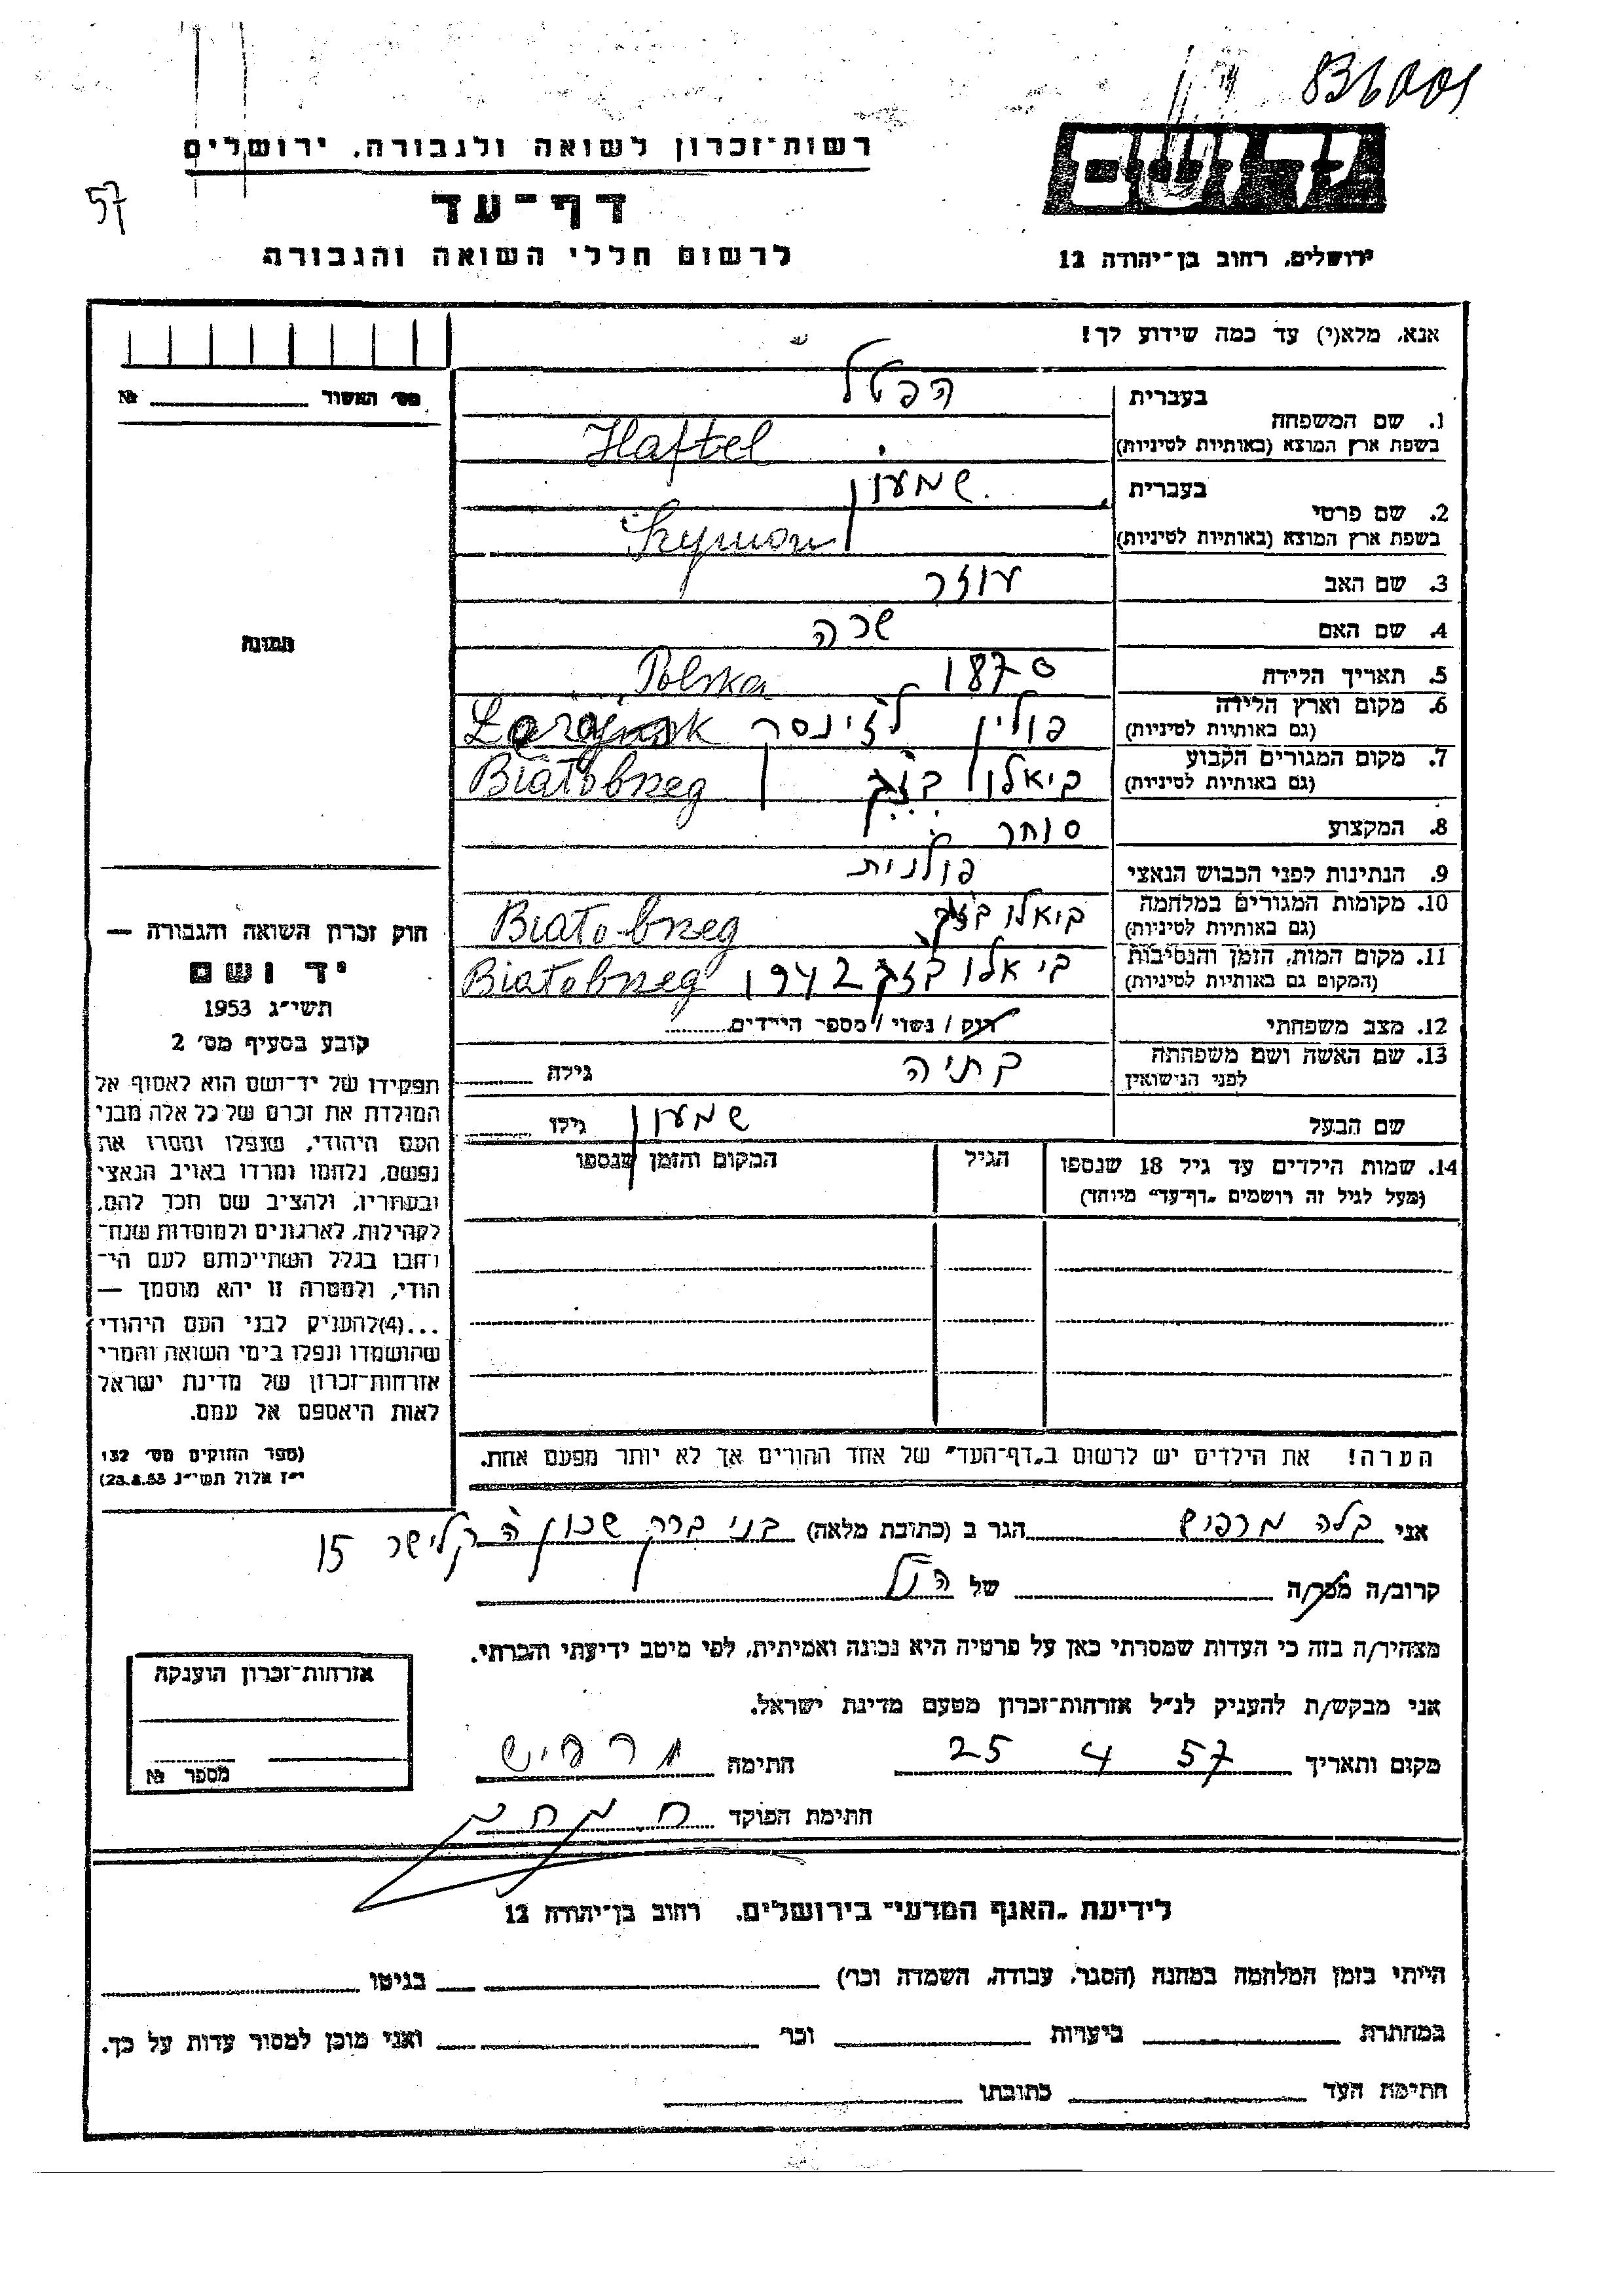 836001
רשות־זכרון לשואה ולגבורה, ירושלים
יד ושם
57
דף־עד
לרשום חללי השואה והגבורה
ירושלים, רחוב בן־יהודה 12
אנא, מלא(י) עד כמה שידוע לך!
מס׳ האשור № 
בעברית הפטל
1. שם המשפחה
בשפת ארץ המוצא (באותיות לטיניות) Haftel
בעברית שמעון
2. שם פרטי
בשפת ארץ המוצא (באותיות לטיניות) Szymon
3. שם האב עוזר
4. שם האם שרה
תמונה
5. תאריך הלידה 1870 Polska
6. מקום וארץ הלידה פולין
(גם באותיות לטיניות)
7. מקום המגורים הקבוע Białobrzeg
(גם באותיות לטיניות)
8. המקצוע סוחר
9. הנתינות לפני הכבוש הנאצי פולנית
10. מקומות המגורים במלחמה Białobrzeg
(גם באותיות לטיניות)
11. מקום המות, הזמן והנסיבות 1942 Białobrzeg
(המקום גם באותיות לטיניות)
12. מצב משפחתי רוק / נשוי / מספר הילדים
13. שם האשה ושם משפחתה גילה
לפני הנישואין
שם הבעל שמעון גילו
14. שמות הילדים עד גיל 18 שנספו הגיל המקום והזמן שנספו
(מעל לגיל זה רושמים „דף־עד״ מיוחד)
חוק זכרון השואה והגבורה —
יד ושם
תשי״ג 1953
קובע בסעיף מס׳ 2
תפקידו של יד־ושם הוא לאסוף אל
המולדת את זכרם של כל אלה מבני
העם היהודי, שנפלו ומסרו את
נפשם, נלחמו ומרדו באויב הנאצי
ובעוזריו, ולהציב שם וזכר להם,
לקהילות, לארגונים ולמוסדות שנח־
רבו בגלל השתייכותם לעם הי־
הודי, ולמטרה זו יהא מוסמך —
...(4)להעניק לבני העם היהודי
שהושמדו ונפלו בימי השואה והמרי
אזרחות־זכרון של מדינת ישראל
לאות היאספם אל עמם.
(ספר החוקים מס׳ 132
י״ז אלול תשי״ג 23.8.53)
הערה! את הילדים יש לרשום ב„דף־העד״ של אחד ההורים אך לא יותר מפעם אחת.
אני בלה מרפיש הגר ב (כתובת מלאה) בני ברק שכון ה קלישר 15
קרוב/ה מכר/ה של הנ״ל
מצהיר/ה בזה כי העדות שמסרתי כאן על פרטיה היא נכונה ואמיתית, לפי מיטב ידיעתי והכרתי.
אני מבקש/ת להעניק לנ״ל אזרחות־זכרון מטעם מדינת ישראל.
מקום ותאריך 25 4 57 חתימה מרפיש
חתימת הפוקד
אזרחות־זכרון הוענקה
מספר №
לידיעת „האגף המדעי״ בירושלים, רחוב בן־יהודה 12
הייתי בזמן המלחמה במחנה (הסגר, עבודה, השמדה וכר׳) בגיטו
במחתרת ביערות וכר׳ ואני מוכן למסור עדות על כך.
חתימת העד כתובתו